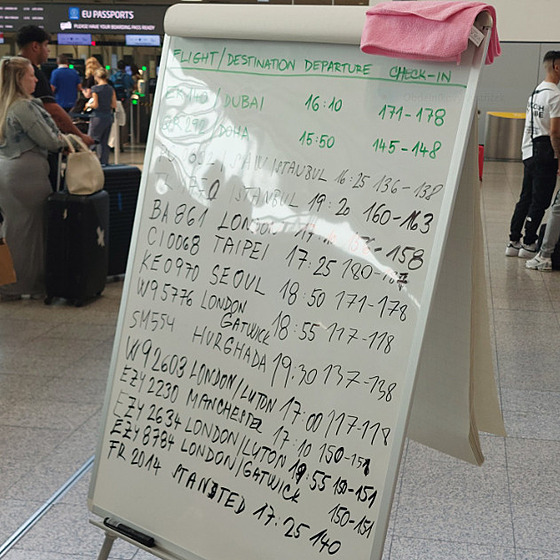 EU PASSPORTS
PLEASE HAVE YOUR BOARDING PASS READY
FLIGHT/DESTINATION DEPARTURE CHECK-IN
/DUBAI 16:10 171-178
DOHA 15:50 145-148
ISTANBUL 16:25 136-138
ISTANBUL 19:20 160-163
BA861 LONDON 158
CI0068 TAIPEI 17:25 180-187
KE0970 SEOUL 18:50 171-178
W95776 LONDON GATWICK 18:55 117-118
SM554 HURGHADA 19:30 137-138
W92603 LONDON/LUTON 17:00 117-118
EZY2230 MANCHESTER 17:10 150-151
EZY2634 LONDON/LUTON 19:55 150-151
EZY8784 LONDON/GATWICK 150-151
FR2014 STANSTED 17.25 140